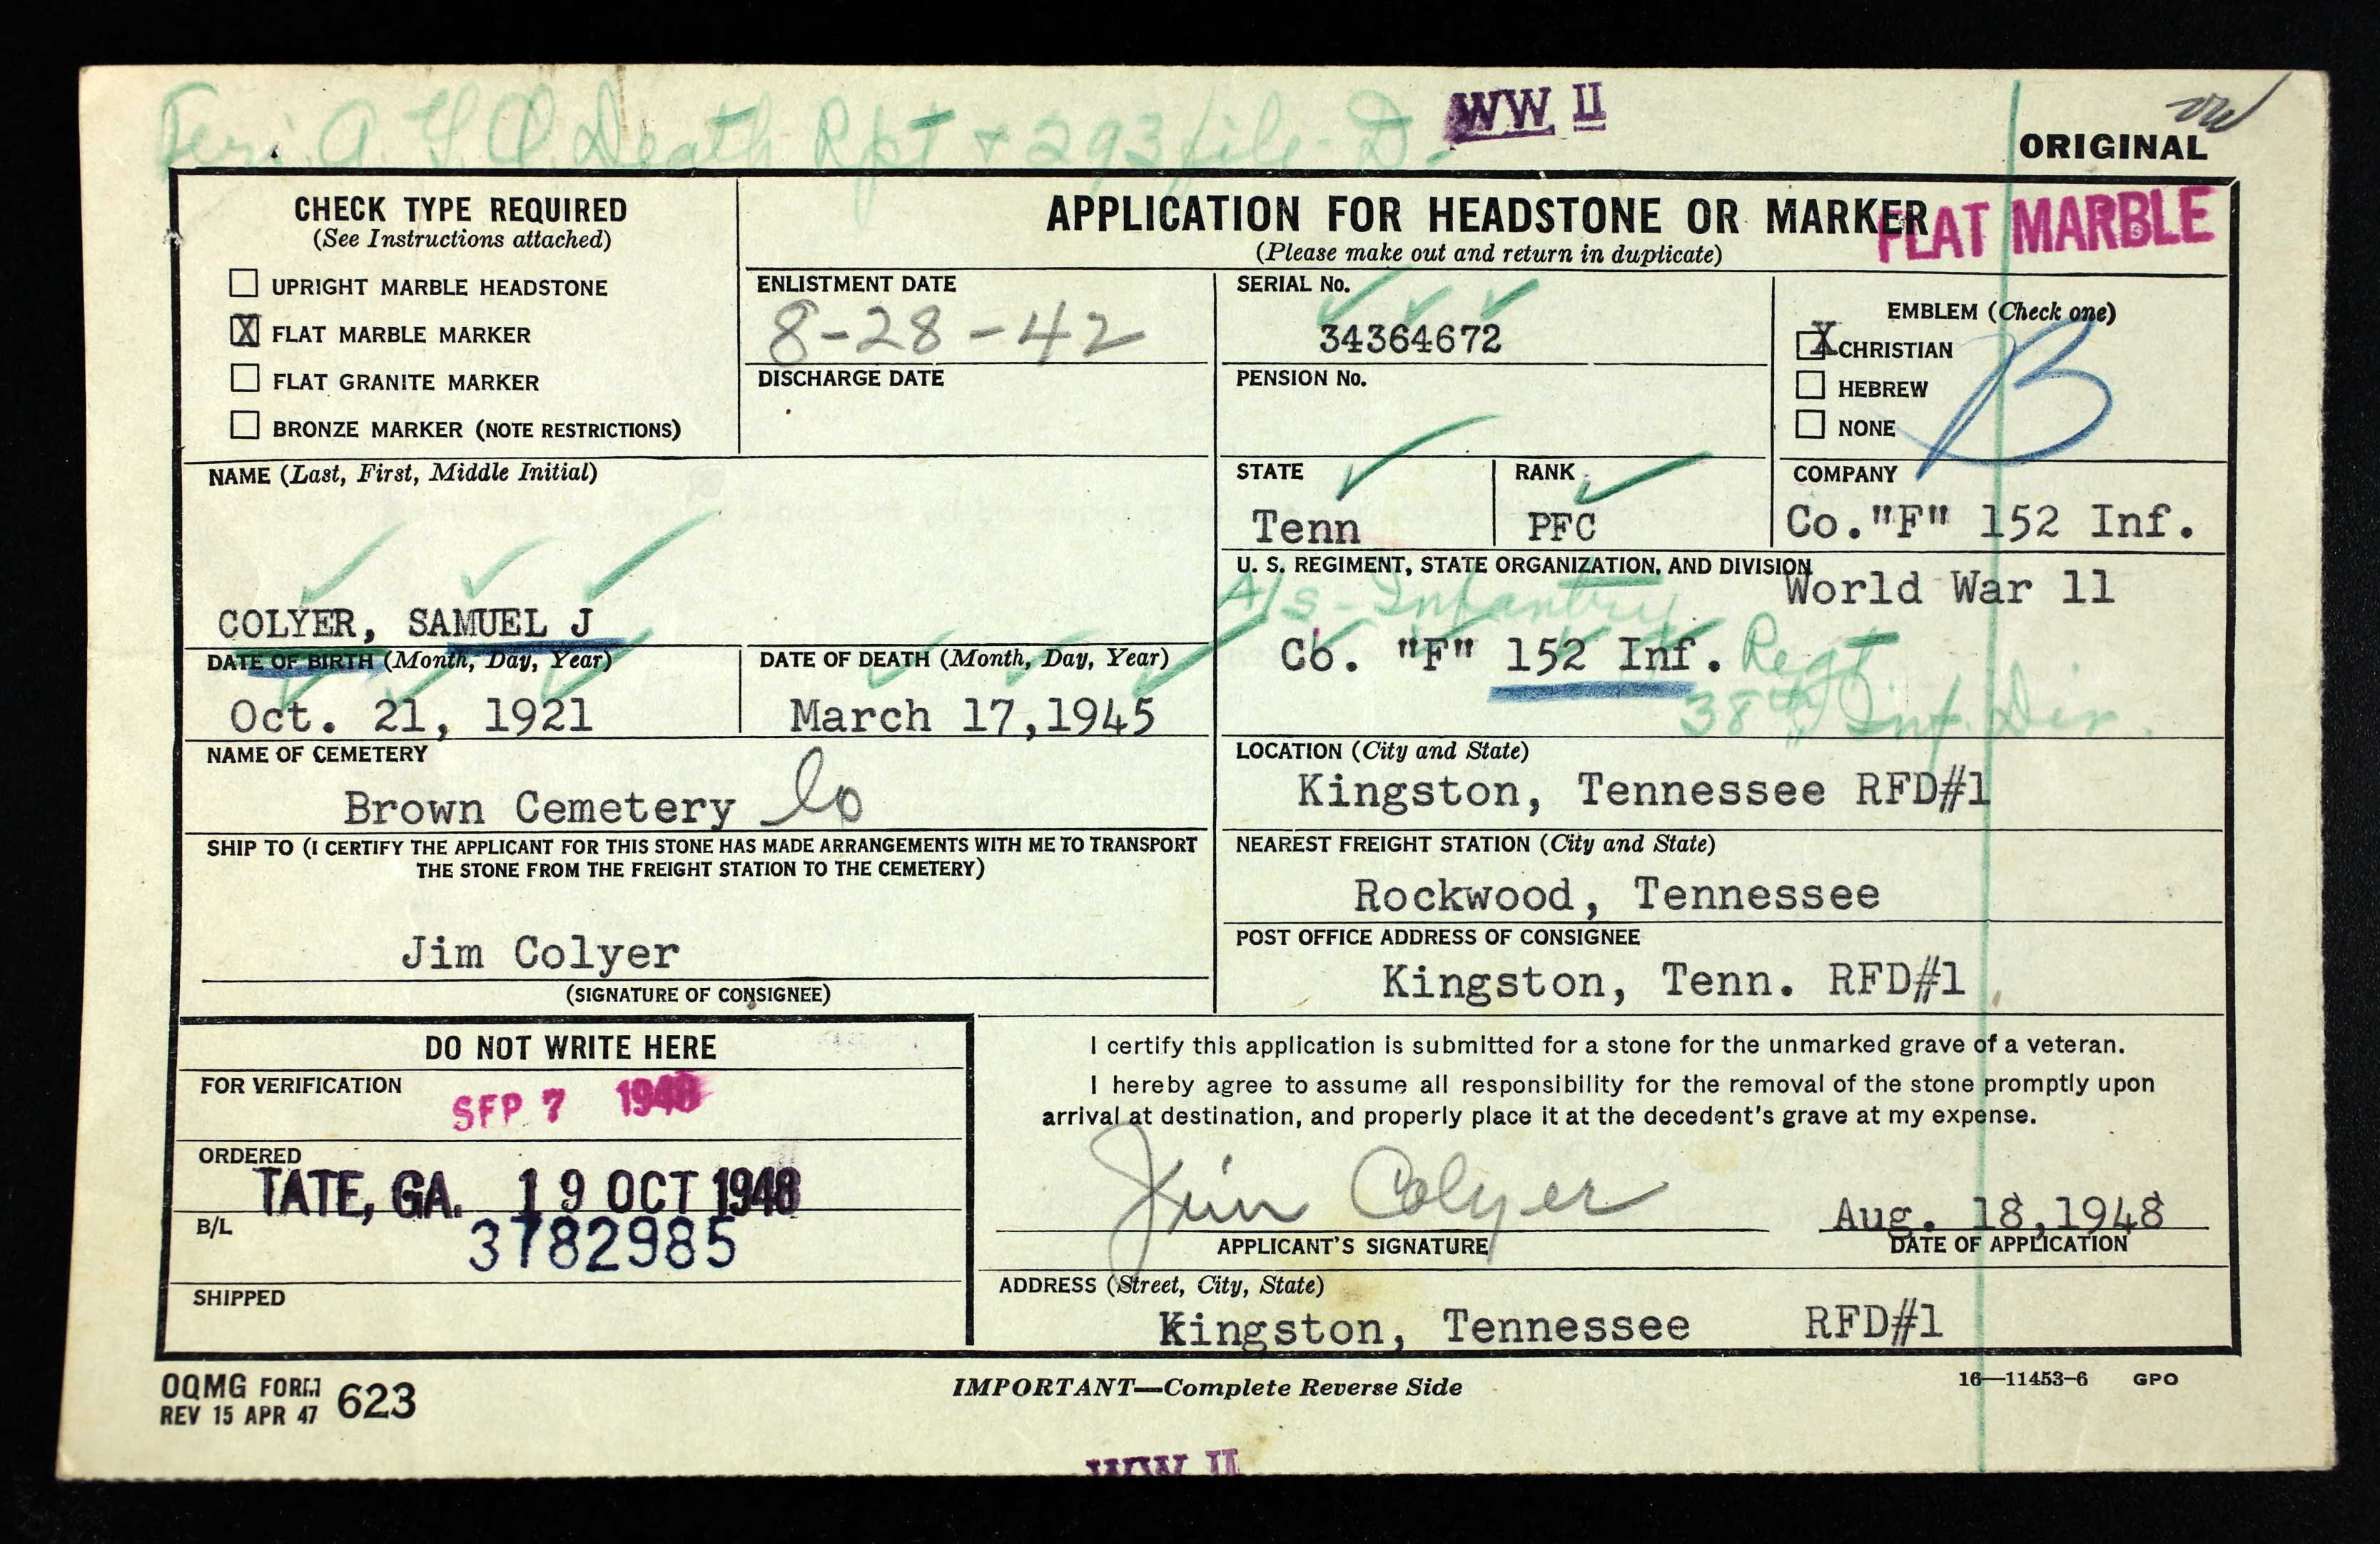 A. G. O. Death Rpt + 293 file - D-
WW II
ORIGINAL
CHECK TYPE REQUIRED
(See Instructions attached)
UPRIGHT MARBLE HEADSTONE
X FLAT MARBLE MARKER
FLAT GRANITE MARKER
BRONZE MARKER (NOTE RESTRICTIONS)
APPLICATION FOR HEADSTONE OR MARKER
FLAT MARBLE
(Please make out and return in duplicate)
ENLISTMENT DATE
8-28-42
DISCHARGE DATE
SERIAL No.
34364672
PENSION No.
EMBLEM (Check one)
X CHRISTIAN
HEBREW
NONE
B
NAME (Last, First, Middle Initial)
COLYER, SAMUEL J
STATE
Tenn
RANK
PFC
COMPANY
Co."F" 152 Inf.
U. S. REGIMENT, STATE ORGANIZATION, AND DIVISION
World War 11
A/S - Infantry
Co. "F" 152 Inf. Regt
38th Inf. Div.
DATE OF BIRTH (Month, Day, Year)
Oct. 21, 1921
DATE OF DEATH (Month, Day, Year)
March 17,1945
NAME OF CEMETERY
Brown Cemetery Co
LOCATION (City and State)
Kingston, Tennessee RFD#1
SHIP TO (I CERTIFY THE APPLICANT FOR THIS STONE HAS MADE ARRANGEMENTS WITH ME TO TRANSPORT
THE STONE FROM THE FREIGHT STATION TO THE CEMETERY)
Jim Colyer
(SIGNATURE OF CONSIGNEE)
NEAREST FREIGHT STATION (City and State)
Rockwood, Tennessee
POST OFFICE ADDRESS OF CONSIGNEE
Kingston, Tenn. RFD#1
DO NOT WRITE HERE
FOR VERIFICATION
SEP 7 1948
ORDERED
TATE, GA. 19 OCT 1948
B/L
3782985
SHIPPED
I certify this application is submitted for a stone for the unmarked grave of a veteran.
I hereby agree to assume all responsibility for the removal of the stone promptly upon
arrival at destination, and properly place it at the decedent's grave at my expense.
Jim Colyer
Aug. 18,1948
APPLICANT'S SIGNATURE
DATE OF APPLICATION
ADDRESS (Street, City, State)
Kingston, Tennessee RFD#1
OQMG FORM 623
REV 15 APR 47
IMPORTANT—Complete Reverse Side
16—11453-6 GPO
WW II